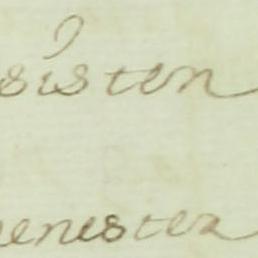 sisten
enester